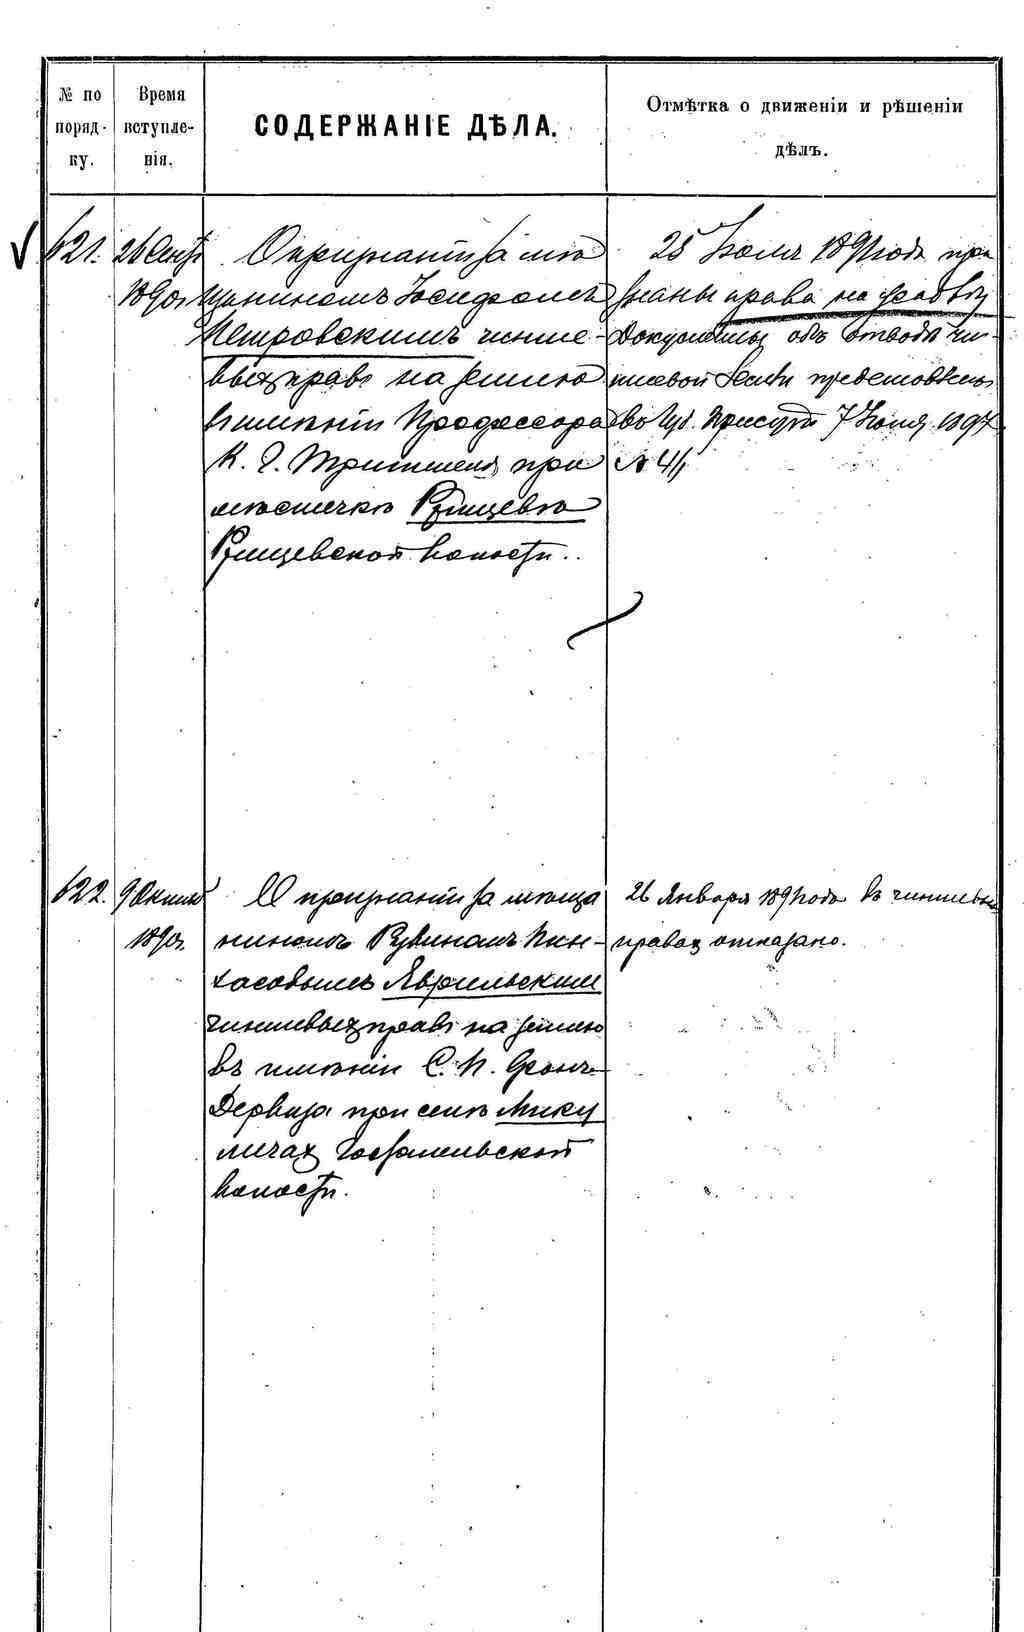 № по поряд- ку.
Время вступле- нія.
СОДЕРЖАНІЕ ДѢЛА.
Отмѣтка о движеніи и рѣшеніи
дѣлъ.
621.
26 Сент
1890г
О признаніи за мѣ
щаниномъ Іосифомъ
Петровскимъ чинше-
выхъ правъ на землю
въ имѣніи Профессора
К. Г. при
мѣстечкѣ Ржищевѣ
Ржищевской волости.
25 1891 года при
знаны права на
Документы объ отводѣ чи-
шевой земли представлены
въ Губ. Присут 7 Іюня 1897
№ 411
622.
9 Октяб
1890г.
О признаніи за мѣща
ниномъ Рувиномъ Пин-
хасовымъ
чиншевыхъ правъ на землю
въ имѣніи С. П. Фонъ-
Дервиза при селѣ Мику
личахъ Гостомельской
волости.
26 Января 1891 года въ чиншевых
правах отказано.